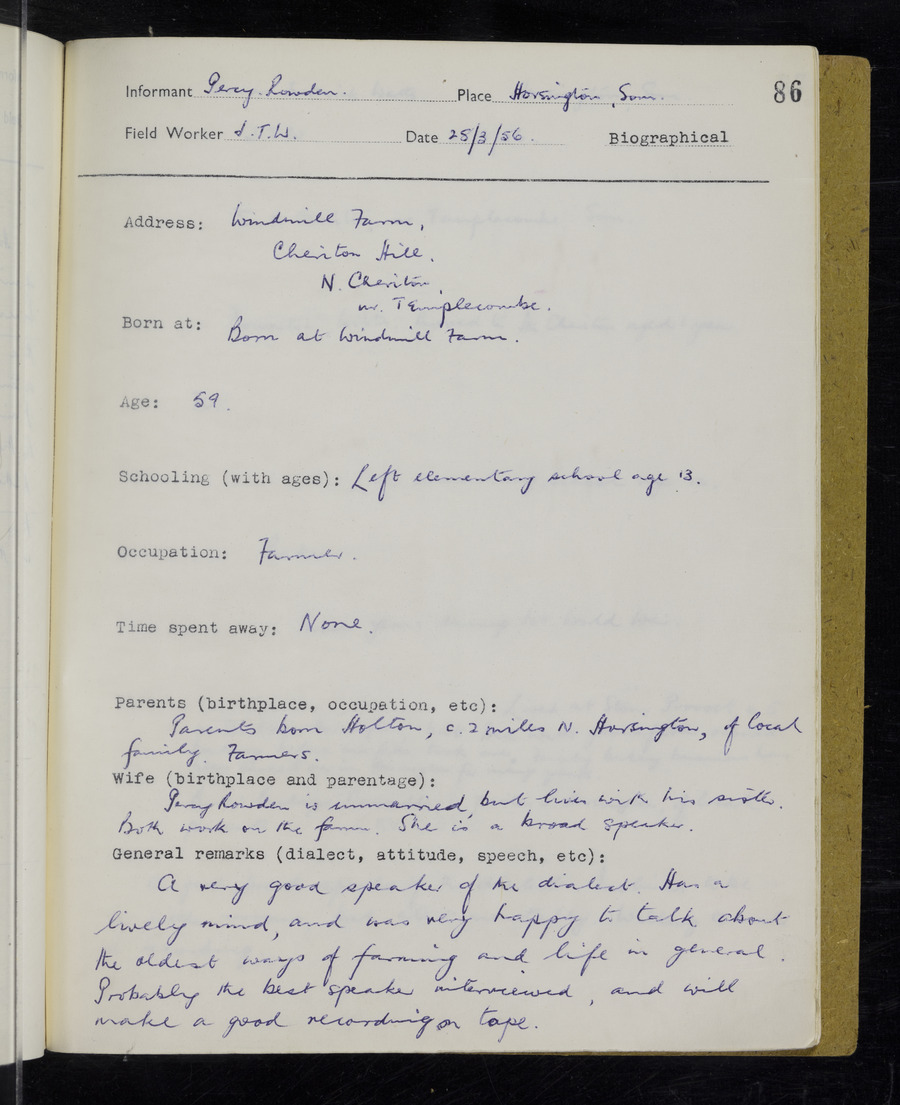 Informant Percy Rowden. Place Horsington, Som. 86
Field Worker J.T.W. Date 25/3/56. Biographical
Address: Windmill Farm,
Cheriton Hill.
N. Cheriton,
nr. Templecombe.
Born at: Born at Windmill Farm.
Age: 59.
Schooling (with ages): Left elementary school age 13.
Occupation: Farmer.
Time spent away: None.
Parents (birthplace, occupation, etc):
Parents born Holton, c. 2 miles N. Horsington, of local
family. Farmers.
Wife (birthplace and parentage):
Percy Rowden is unmarried, but lives with his sister.
Both work on the farm. She is a broad speaker.
General remarks (dialect, attitude, speech, etc):
A very good speaker of the dialect. Has a
lively mind, and was very happy to talk about
the oldest ways of farming and life in general.
Probably the best speaker interviewed, and will
make a good recording on tape.